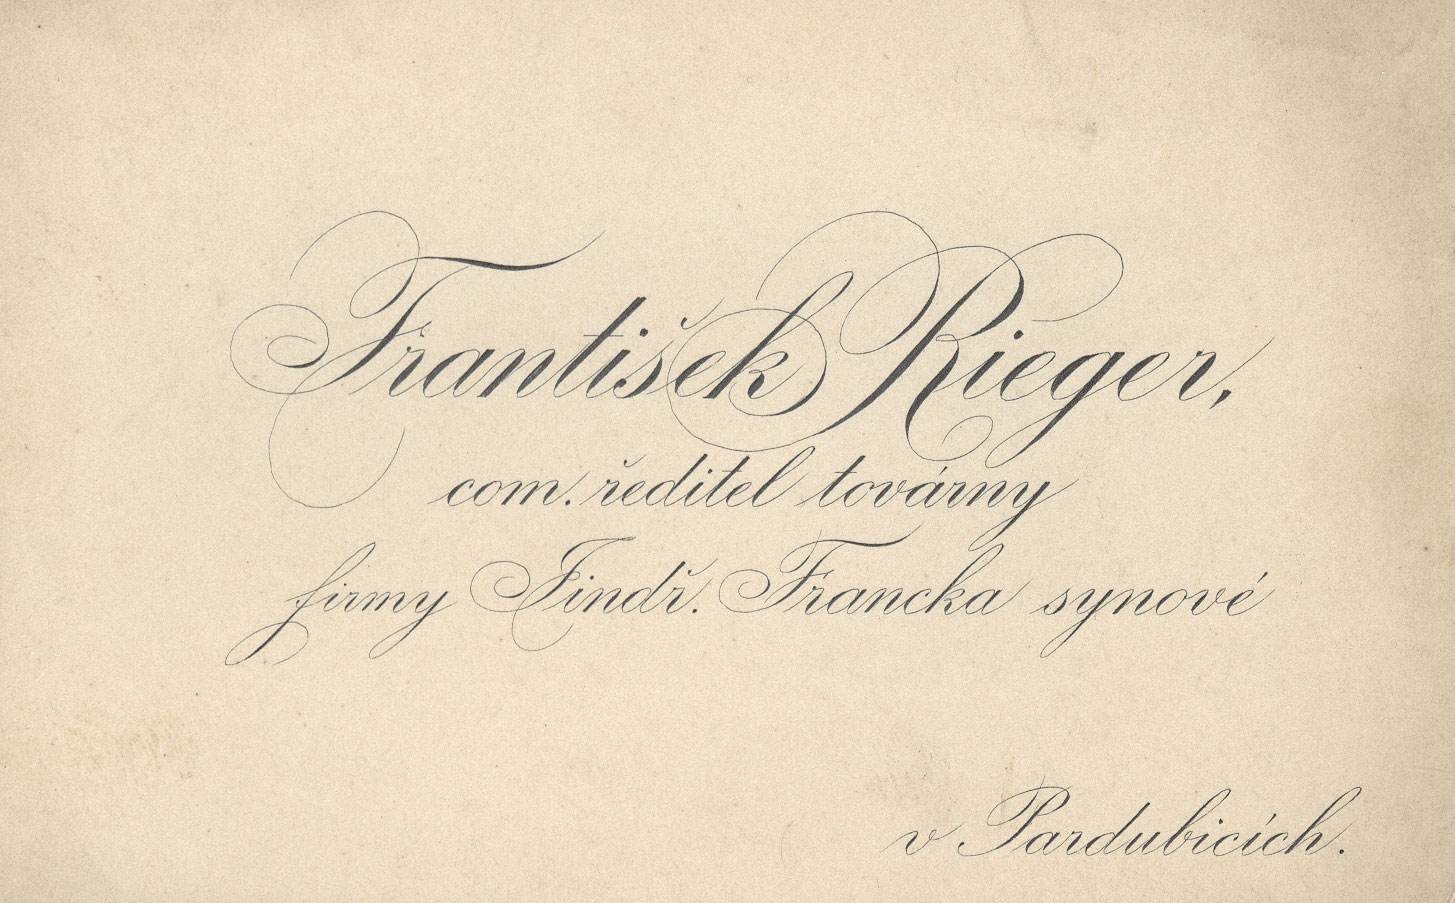 František Rieger,
com. ředitel továrny
firmy Jindř. Francka synové
v Pardubicích.